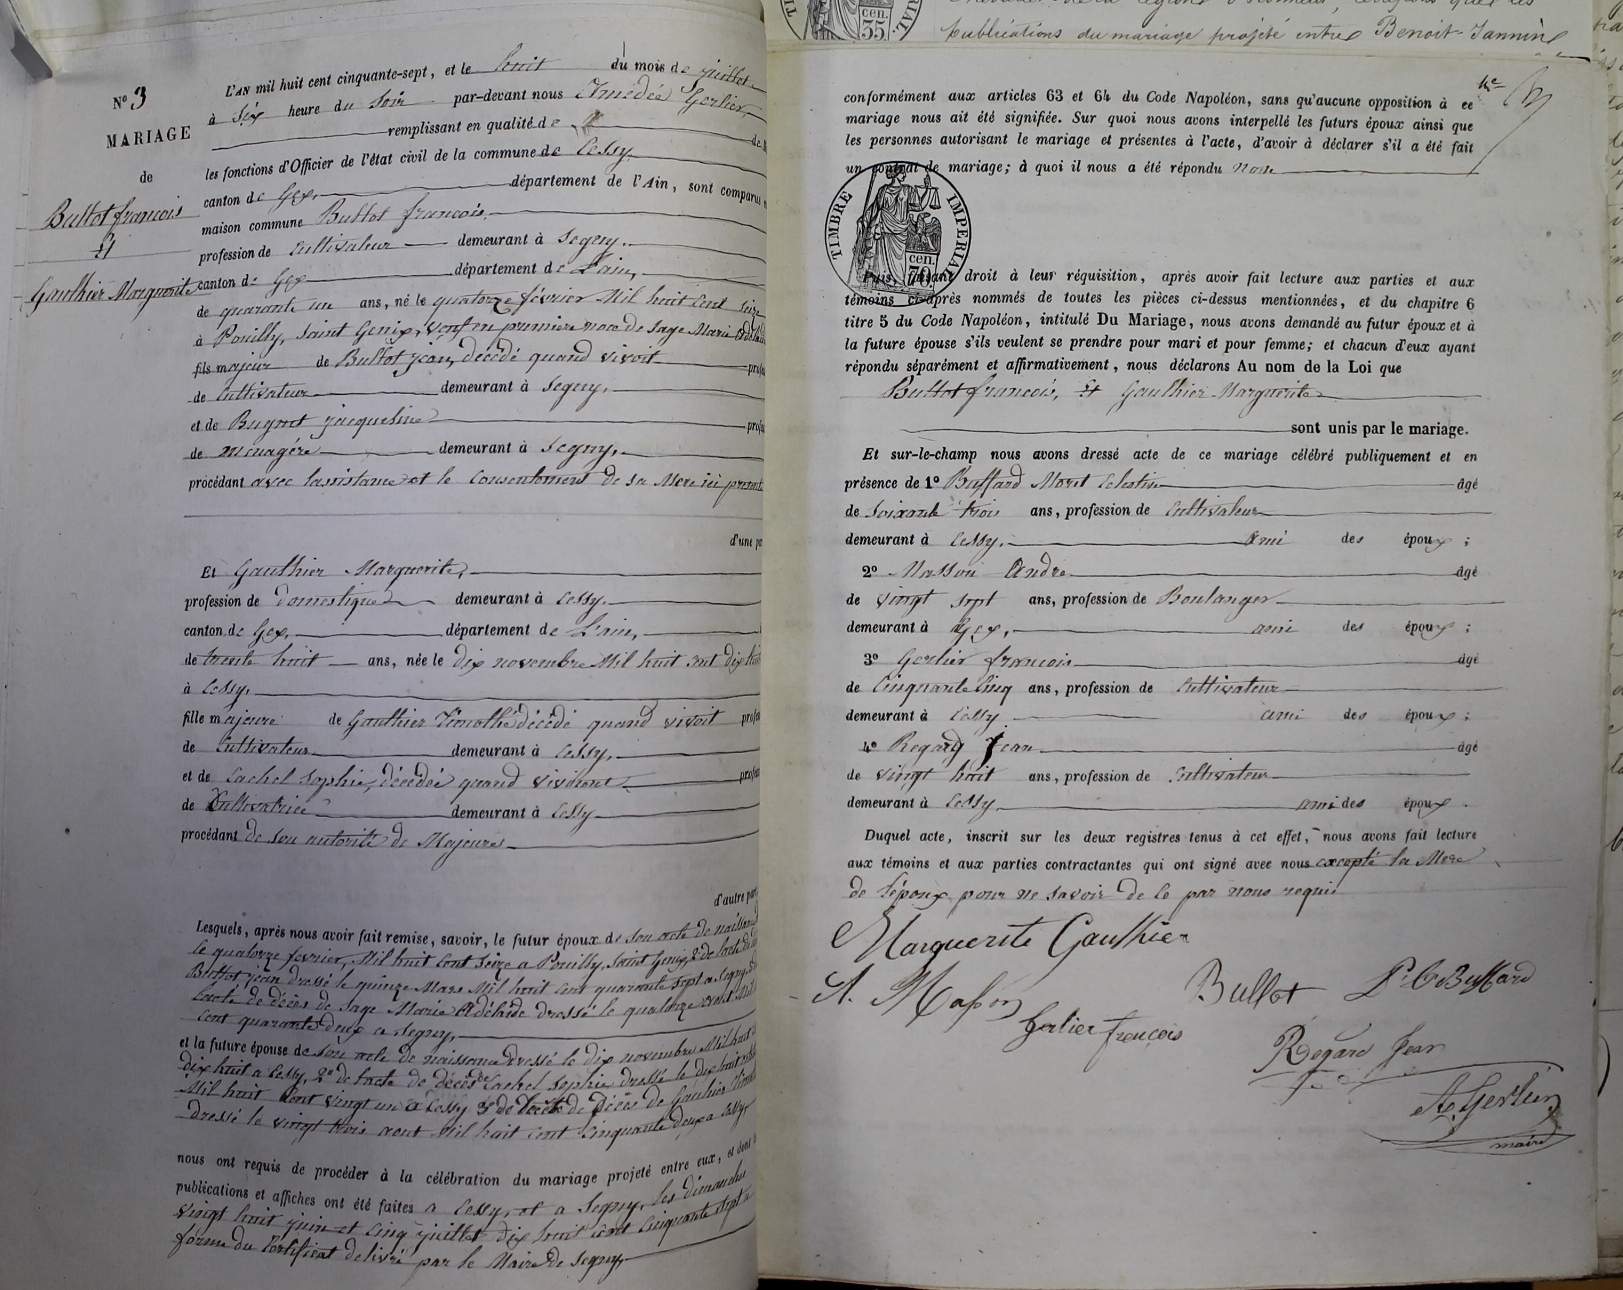 N° 3
MARIAGE
de
Bullot françois
Et
Gauthier Marguerite
L'AN mil huit cent cinquante-sept, et le huit du mois de juillet
à Six heure du Soir par-devant nous Amédée Gerlier,
remplissant en qualité de
les fonctions d'Officier de l'état civil de la commune de Cessy
canton de Gex, département de l'Ain, sont comparus
maison commune Bullot françois
profession de Cultivateur demeurant à Segny.
canton de Gex département de L'ain,
de quarante un ans, né le quatorze février Mil huit Cent seize
à Pouilly, Saint Genix, veuf en premiere noce de Sage Marie Adelaide
fils majeur de Bullot jean, décédé quand vivoit
de Cultivateur demeurant à Segny,
et de Bugont jacqueline
de ménagére demeurant à Segny,
procédant avec lassistance et le Consentement de sa Mere ici present
d'une pa
Et Gauthier Marguerite,
profession de Domestique demeurant à Cessy.
canton de Gex, département de L'ain,
de trente huit ans, née le dix novembre Mil huit cent dix huit
à Cessy,
fille majeure de Gauthier Timothé décédé quand vivoit
de Cultivateur demeurant à Cessy,
et de Cachel Sophie, décédé quand vivoient
de Cultivatrice demeurant à Cessy
procédant de son autorité de Majeure
d'autre par
Lesquels, après nous avoir fait remise, savoir, le futur époux de son acte de naissance
le quatorze fevrier, Mil huit Cent Seize a Pouilly, Saint Genix, 2° de lacte de
Bullot jean dressé le quinze Mars Mil huit Cent quarante sept a Segny,
Lacte de décès de Sage Marie Adélaide dressé le quatorze
Cent quarante deux a Segny,
et la future épouse de son acte de naissance dressé le dix novembre Mil huit
dix huit a Cessy, 2° de lacte de décès de Cachel Sophie dressé le dix huit
Mil huit Cent vingt un a Cessy 3° de lacte de Décès de Gauthier
dressé le vingt trois aout Mil huit cent Cinquante deux a Cessy,
nous ont requis de procéder à la célébration du mariage projeté entre eux, et dont
publications et affiches ont été faites a Cessy, et a Segny, les dimanches
vingt huit juin et Cinq juillet dix huit cent Cinquante sept
forme du Certificat delivré par le Maire de Segny
cen.
35
publications du mariage projeté entre Benoit Jannin
conformément aux articles 63 et 64 du Code Napoléon, sans qu'aucune opposition à ce
mariage nous ait été signifiée. Sur quoi nous avons interpellé les futurs époux ainsi que
les personnes autorisant le mariage et présentes à l'acte, d'avoir à déclarer s'il a été fait
un contrat de mariage; à quoi il nous a été répondu non
TIMBRE IMPERIAL
cen.
70
Puis, faisant droit à leur réquisition, après avoir fait lecture aux parties et aux
témoins ci-après nommés de toutes les pièces ci-dessus mentionnées, et du chapitre 6
titre 5 du Code Napoléon, intitulé Du Mariage, nous avons demandé au futur époux et à
la future épouse s'ils veulent se prendre pour mari et pour femme; et chacun d'eux ayant
répondu séparément et affirmativement, nous déclarons Au nom de la Loi que
Bullot françois, Et Gauthier Marguerite
sont unis par le mariage.
Et sur-le-champ nous avons dressé acte de ce mariage célébré publiquement et en
présence de 1° Buffard Mont Celestin âgé
de Soixante trois ans, profession de Cultivateur
demeurant à Cessy. ami des époux;
2° Masson Andre âgé
de vingt sept ans, profession de Boulanger
demeurant à Gex, ami des époux;
3° Gerlier françois âgé
de Cinquante Cinq ans, profession de Cultivateur
demeurant à Cessy ami des époux;
4° Regard Jean âgé
de vingt huit ans, profession de Cultivateur
demeurant à Cessy ami des époux.
Duquel acte, inscrit sur les deux registres tenus à cet effet, nous avons fait lecture
aux témoins et aux parties contractantes qui ont signé avec nous excepté la Mere
de l'époux pour ne savoir de ce par nous requis
Marguerite Gauthier
A. Masson
Bullot
Gerlier françois
Regard Jean
A. Gerlier
maire